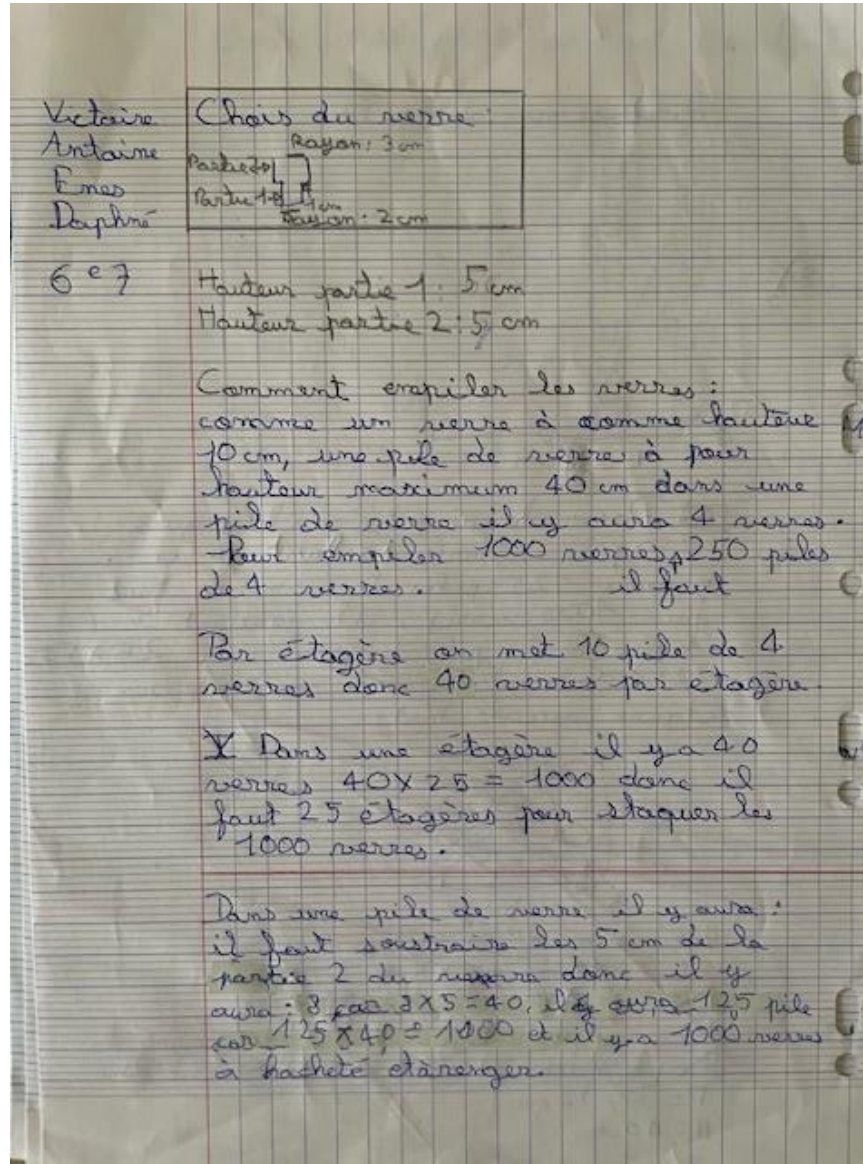 Victoire
Antoine
Enes
Daphné
6e7
Choix du verre
Rayon: 3 cm
Partie 2
Partie 1
1cm
Rayon: 2 cm
Hauteur partie 1: 5 cm
Hauteur partie 2: 5 cm
Comment empiler les verres:
comme un verre à comme hauteur
10 cm, une pile de verre à pour
hauteur maximum 40 cm dans une
pile de verre il y aura 4 verres.
Pour empiler 1000 verres, 250 piles
de 4 verres. il faut
Par étagère on met 10 pile de 4
verres donc 40 verres par étagère.
Dans une étagère il y a 40
verres 40X25 = 1000 donc il
faut 25 étagères pour staquer les
1000 verres.
Dans une pile de verre il y aura:
il faut soustraire les 5 cm de la
partie 2 du verre donc il y
aura: 8 car 8X5=40, il y aura 125 pile
car 125X40= 1000 et il y a 1000 verres
à hacheté etàrenger.